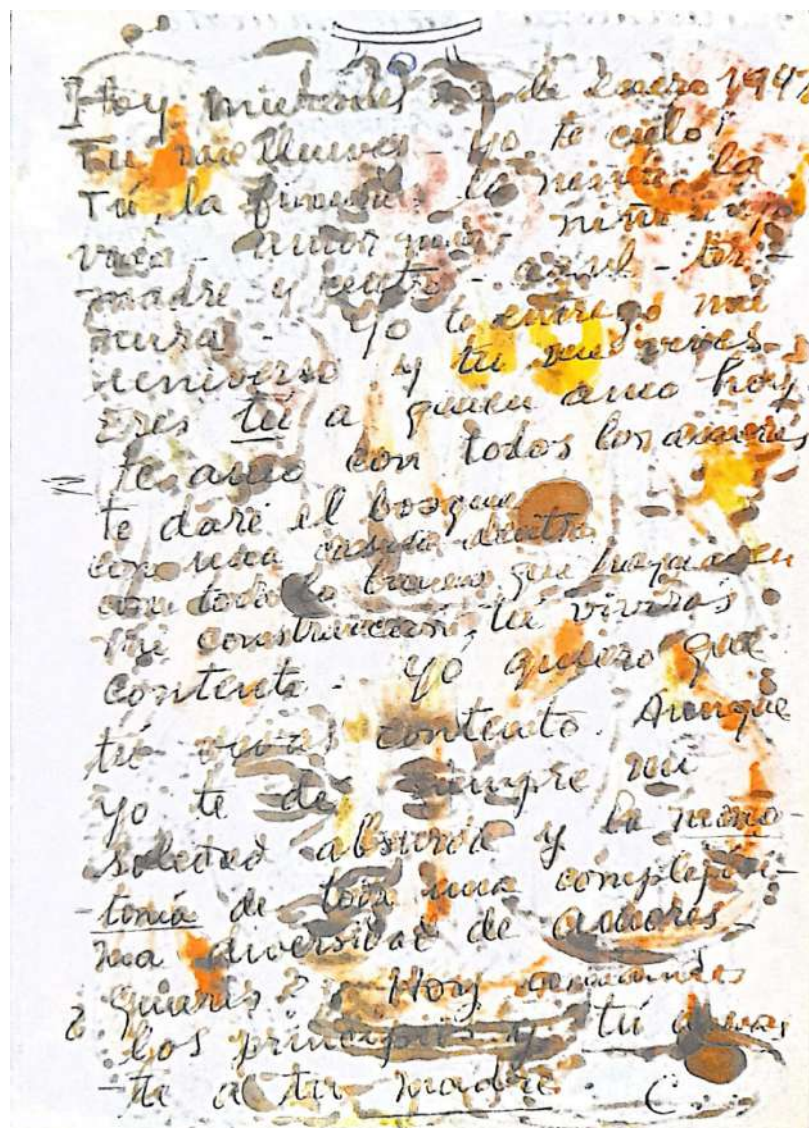 Hoy miercoles de Enero 194
Tu me llueves - yo te cielo
Tú, la finura, la niñez, la
vida - amor mío niño
madre y centro - azul - ter-
nura - Yo te entrego mi
universo y tu me vives
Eres tú a quien amo hoy
te amo con todos los amores
te daré el bosque
con una casita dentro
con todo lo bueno que haya en
mi construcción, tú vivirás
contento - yó quiero que
tú vivas contento. Aunque
yo te dé siempre mi
soledad absurda y la mono-
-tonía de toda una complejísi-
ma diversidad de amores -
¿Quieres? Hoy
los principios y tú amas
-te a tu madre. C